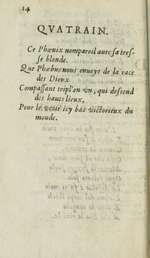 14
QVATRAIN.
Ce Phœnix nompareil auec sa tres-
se blonde,
Que Phœbus nous enuoye de la race
des Dieux
Compassant tripl'en vn, qui descend
des hauts lieux,
Pour se venir icy bas victorieux du
monde.